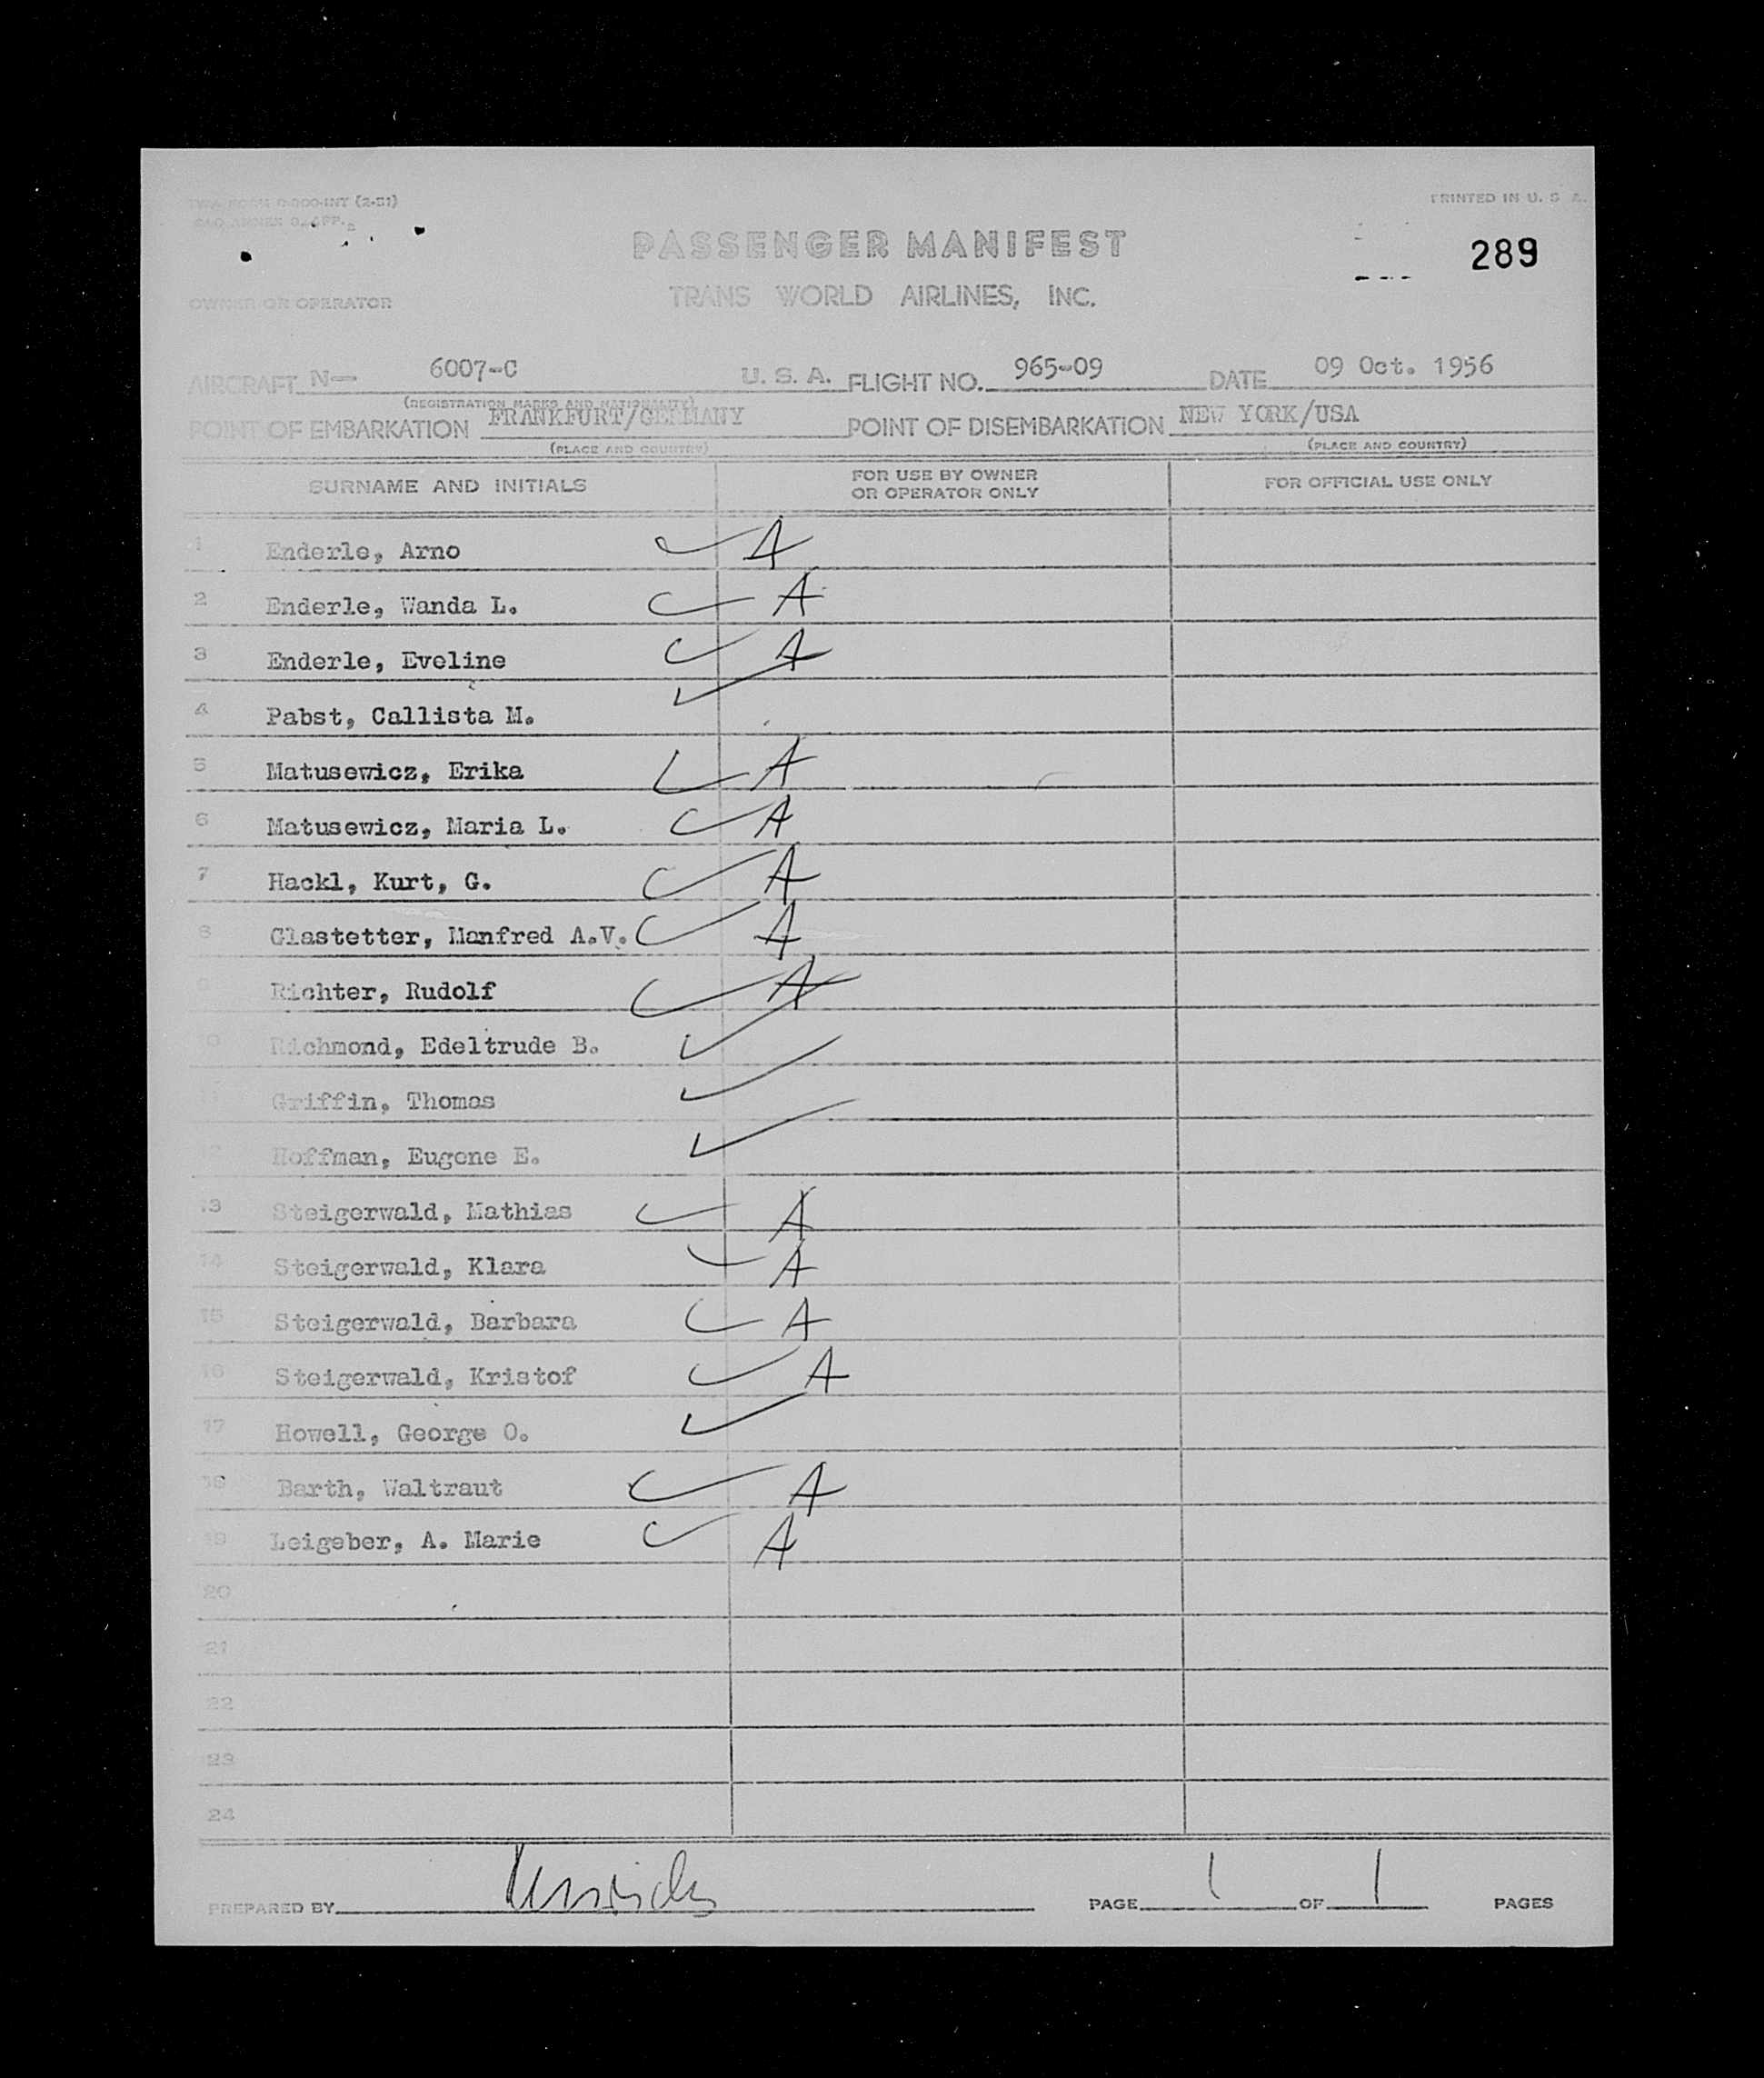 (2-51)
PRINTED IN U. S. A.
PASSENGER MANIFEST
289
TRANS WORLD AIRLINES, INC.
OWNER OR OPERATOR
AIRCRAFT N- 6007-C U. S. A. FLIGHT NO. 965-09 DATE 09 Oct. 1956
(REGISTRATION MARKS AND NATIONALITY)
POINT OF EMBARKATION FRANKFURT/GERMANY POINT OF DISEMBARKATION NEW YORK/USA
(PLACE AND COUNTRY) (PLACE AND COUNTRY)
SURNAME AND INITIALS FOR USE BY OWNER OR OPERATOR ONLY FOR OFFICIAL USE ONLY
1 Enderle, Arno A
2 Enderle, Wanda L. A
3 Enderle, Eveline A
4 Pabst, Callista M.
5 Matusewicz, Erika A
6 Matusewicz, Maria L. A
7 Hackl, Kurt, G. A
8 Glastetter, Manfred A.V. A
9 Richter, Rudolf A
10 Richmond, Edeltrude B.
11 Griffin, Thomas
12 Hoffman, Eugene E.
13 Steigerwald, Mathias A
14 Steigerwald, Klara A
15 Steigerwald, Barbara A
16 Steigerwald, Kristof A
17 Howell, George O.
18 Barth, Waltraut A
19 Leigeber, A. Marie A
20
21
22
23
24
PREPARED BY PAGE 1 OF 1 PAGES